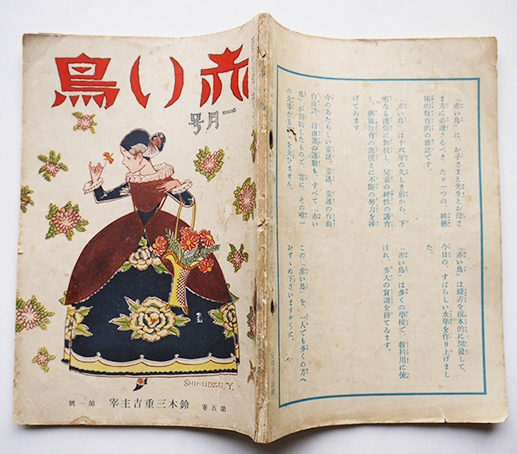 赤い鳥
一月号
SHIMIDZU.Y.
第五巻 鈴木三重吉主宰 第一號
「赤い鳥」は、お子さまと先生とお母さ
ま方に必讀さるべき、たゞ一つの、純藝
術的敎育的の雜誌です。
「赤い鳥」は十六年の久しき前から、下
劣なる流俗に對抗し、兒童の純性の護育
と、藝術敎育の發展とに不斷の努力を捧
げてゐます。
今のあたらしい童話、童謠、童謠の作曲
自由詩、自由畫の運動も、すべて「赤い
鳥」が創始したもので、常に、その唯一
の
を失ひません。
「赤い鳥」は綴方を根本的に開發して、
今日の、すばらしい水準を作り上げまし
た。
「赤い鳥」は多くの學校で、敎科用に使
はれ、多大の賞讚を得てゐます。
この「赤い鳥」を、一人でも多くの方へ
おすゝめ下さいますやうに。